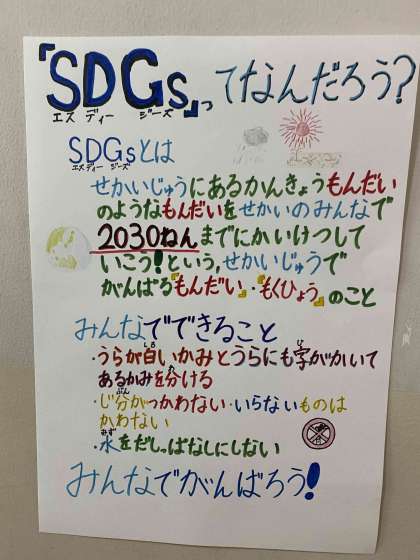 『SDGs』ってなんだろう?
エス ディー ジーズ
SDGsとは
エスディー ジーズ
せかいじゅうにあるかんきょうもんだい
のようなもんだいをせかいのみんなで
2030ねんまでにかいけつして
いこう!という,せかいじゅうで
がんばる『もんだい』・『もくひょう』のこと
みんなでできること
・うらが白いかみとうらにも字がかいて
あるかみを分ける
・じ分がつかわない・いらないものは
かわない
・水をだしっぱなしにしない
みんなでがんばろう!